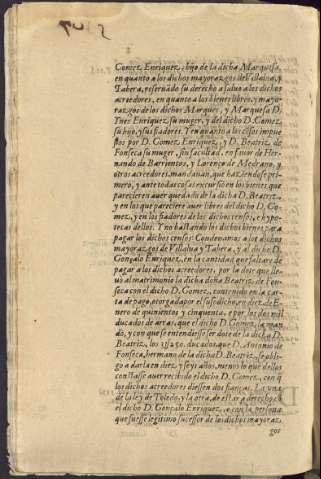 Gomez Enriquez, hijo de la dicha Marquesa,
en quanto a los dichos mayorazgos de Villalua, y
Tabera, reseruado su derecho a saluo a los dichos
acreedores, en quanto a los bienes libres, y mayo-
razgos de los dichos Marques, y Marquesa D.
Ines Enriquez su muger, y del dicho D. Gomez
su hijo, y sus fiadores. Y en quanto a los césos impue-
stos por D. Gomez Enriquez, y D. Beatriz de
Fonseca su muger, sin facultad, en fauor de Her-
nando de Barrientos, y Lorenço de Medrano, y
otros acreedores, mandauan, que haziendose pri-
mero, y ante todas cosas excursion en los bienes que
parecieren auer quedado de la dicha D. Beatriz,
y en los que pareciere auer libres del dicho D. Go-
mez, y en los fiadores de los dichos censos, e hypo-
tecas dellos. Y no bastando los dichos bienes para
pagar los dichos censos: Condenamos a los dichos
mayorazgos de Villalua y Tabera, y al dicho D.
Gonçalo Enriquez, en la cantidad que faltare de
pagar a los dichos acreedores, por la dote que lle-
uó al matrimonio la dicha doña Beatriz de Fon-
seca con el dicho D. Gomez, contenido en la car-
ta de pago, otorgada por el susodicho, en diez de E-
nero de quinientos y cinquenta, e por los dos mil
ducados de arras, que el dicho D. Gomez la man-
dó, y con que se entienda ser dote de la dicha D.
Beatriz, los 15250. ducados, que D. Antonio de
Fonseca, hermano de la dicha D. Beatriz, se obli-
go a darla en diez y seys años, menos lo que dellos
constasse auer recebido el dicho D. Gomez, con q̃
los dichos acreedores diessen dos fianças. La vna
de la ley de Toledo, y la otra, de estar a derecho cõ
el dicho D. Gonçalo Enriquez, o con la persona
que fuesse legitimo sucessor de los dichos mayoraz-
gos